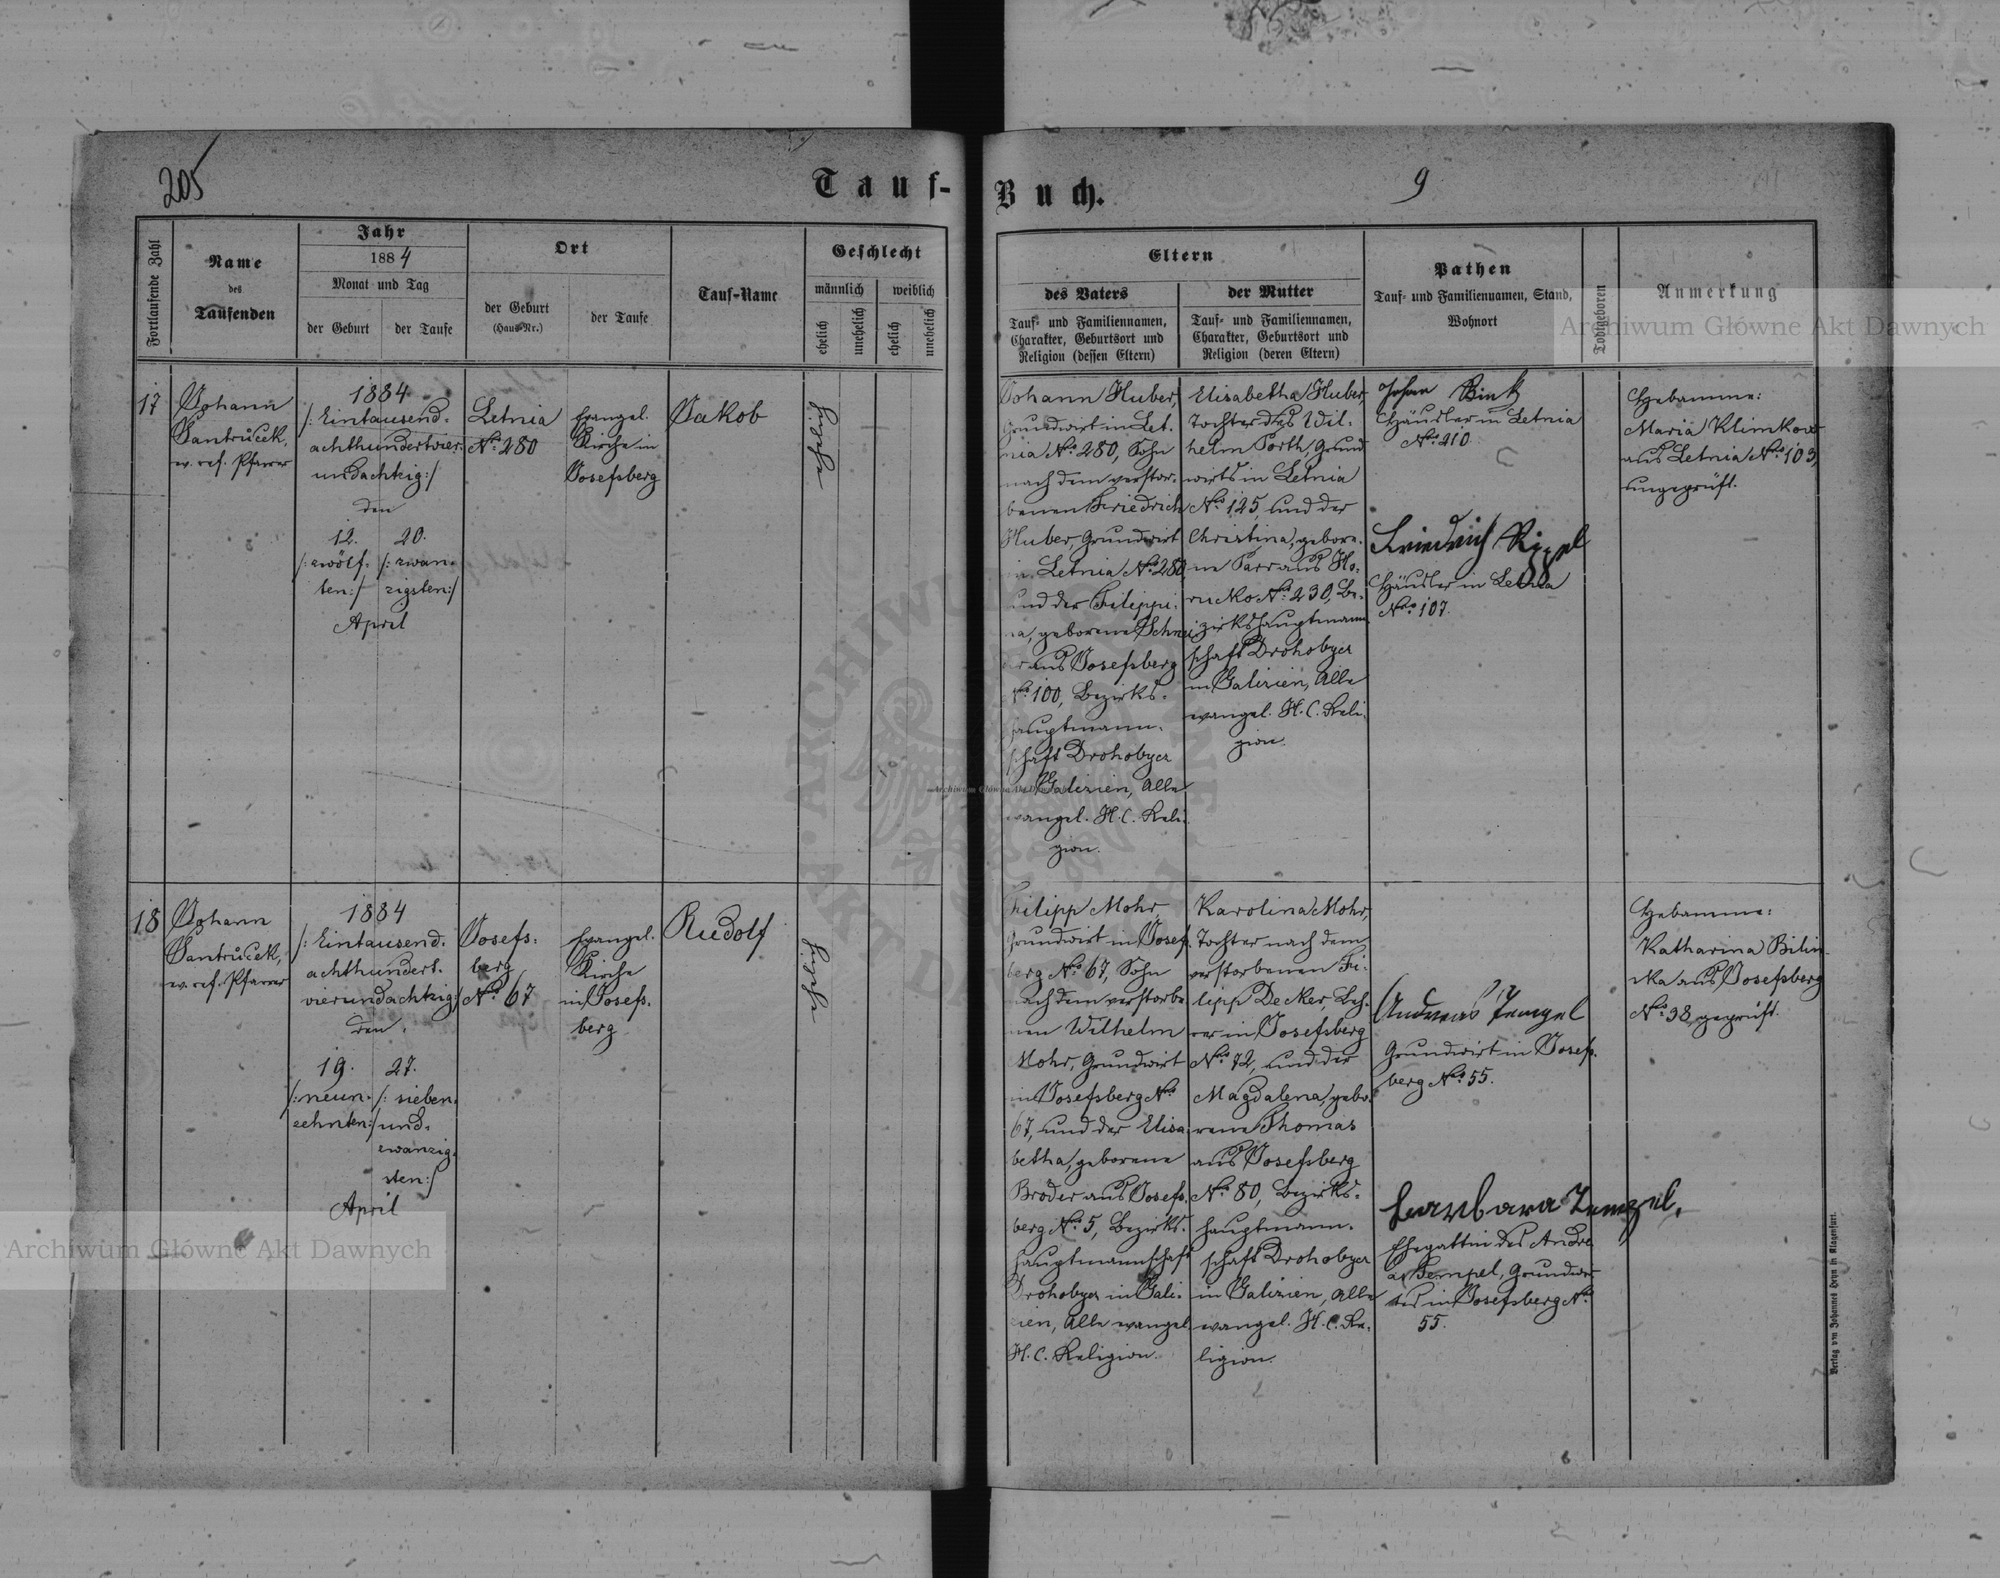 205
Tauf-
Buch.
9
Fortlaufende Zahl
Name
des
Taufenden
Jahr
1884
Monat und Tag
der Geburt
der Taufe
Ort
der Geburt
(Haus-Nr.)
der Taufe
Tauf-Name
Geschlecht
männlich
weiblich
ehelich
unehelich
ehelich
unehelich
Eltern
des Vaters
Tauf- und Familiennamen,
Charakter, Geburtsort und
Religion (dessen Eltern)
der Mutter
Tauf- und Familiennamen,
Charakter, Geburtsort und
Religion (deren Eltern)
Pathen
Tauf- und Familiennamen, Stand,
Wohnort
Todtgeboren
Anmerkung
17
Johann
Jantrůček,
ev. ref. Pfarrer
1884
/: Eintausend-
achthundertvier-
undachtzig :/
den
12.
/: zwölf-
ten :/
20.
/: zwan-
zigsten :/
April
Letnia
No. 280
Evangel.
Kirche in
Josefsberg
Jakob
ehelich
Johann Huber,
Grundwirt in Let-
nia No. 280, Sohn
nach dem verstor-
benen Friedrich
Huber, Grundwirt
in Letnia No. 280
und der Filippi-
na, geborene
aus Josefsberg
No. 100, Bezirks-
hauptmann-
schaft Drohobycz
Galizien, Alle
evangel. H. C. Reli-
gion.
Elisabetha Huber,
Tochter des Wil-
helm Porth, Grund
wirts in Letnia
No. 125, und der
Christina, gebore-
ne Parr aus Ho-
rucko No. 230, Be-
zirkshauptmann
schaft Drohobycz
in Galizien, Alle
evangel. H. C. Reli-
gion.
Johan Bink
Häusler in Letnia
No. 210
Friedrich Rippel
Häusler in Letnia
No. 107.
Hebamme:
Maria Klimkow
aus Letnia No. 103,
ungeprüft.
18
Johann
Jantrůček,
ev. ref. Pfarrer
1884
/: Eintausend-
achthundert-
vierundachtzig :/
den
19.
/: neun-
zehnten :/
27.
/: sieben-
und-
zwanzig-
sten :/
April
Josefs-
berg
No. 67
Evangel.
Kirche
in Josefs-
berg
Rudolf
ehelich
Filipp Mohr,
Grundwirt in Josefs
berg No. 67, Sohn
nach dem verstorbe
nen Wilhelm
Mohr, Grundwirt
in Josefsberg No.
67, und der Elisa-
betha, geborene
Bröder aus Josefs-
berg No. 5, Bezirks-
hauptmannschaft
Drohobycz in Gali-
zien, Alle evangel.
H. C. Religion.
Karolina Mohr,
Tochter nach dem
verstorbenen Fi-
lipp Decker, Leh-
rer in Josefsberg
No. 72, und der
Magdalena, gebo-
rene Thomas
aus Josefsberg
No. 80, Bezirks-
hauptmann-
schaft Drohobycz
in Galizien, Alle
evangel. H. C. Re-
ligion.
Andreas Tempel
Grundwirt in Josefs-
berg No. 55.
Barbara Tempel,
Ehegattin des Andre-
as Tempel, Grundwir-
tes in Josefsberg No.
55.
Hebamme:
Katharina Bilin
ska aus Josefsberg
No. 38, geprüft.
Verlag von Johannes Heyn in Klagenfurt.
Archiwum Główne Akt Dawnych
Archiwum Główne Akt Dawnych
Archiwum Główne Akt Dawnych